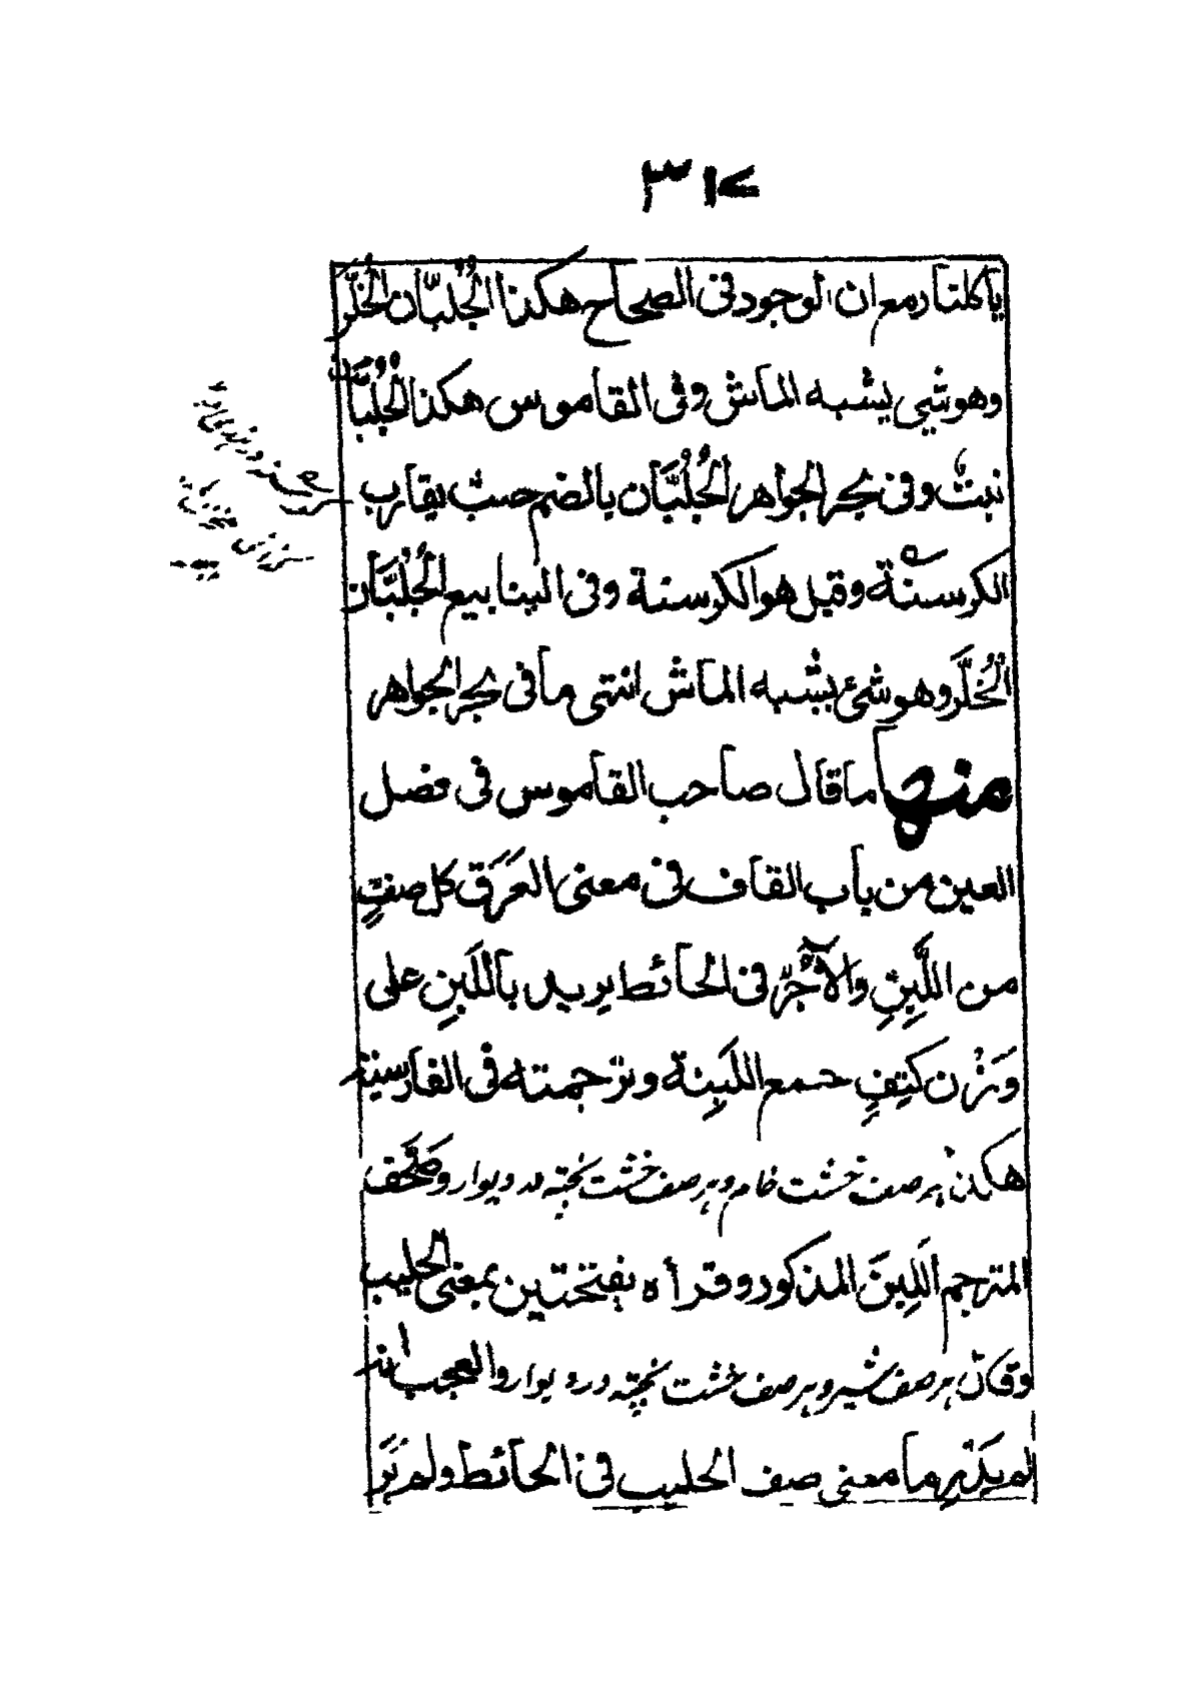 ۳۱۷
يا كلتا رمع ان الموجود فى الصحاح هكذا الجُلُبَّان الخُلَّر
وهو شي يشبه الماش وفى القاموس هكذا الجُلُبَّان
نبتٌ وفى بحر الجواهر الجُلُبَّان بالضم حبٌّ يقارب
الكرسنّة وقيل هو الكرسنة وفى الينابيع الجُلُبَّان
الخُلَّر وهو شئ يشبه الماش انتهى ما فى بحر الجواهر
منها ما قال صاحب القاموس فى فصل
العين من باب القاف فى معنى العَرَق كل صفٍّ
من اللَّبِنِ والآجُرّ فى الحائط يريد باللَبِنِ على
وَزْن كَتِفٍ جمع اللَبِنة وترجمته فى الفارسية
هكذا ہر صف خشت خام و ہر صف خشت پختہ در دیوار وصَحَّف
المترجم اللَبِنَ المذكور وقرأه بفتحتين بمعنى الحليب
وقال ہر صف شیر و ہر صف خشت پختہ در دیوار والعجب انه
لم يَدْرِ ما معنى صف الحليب فى الحائط ولم يَرَ